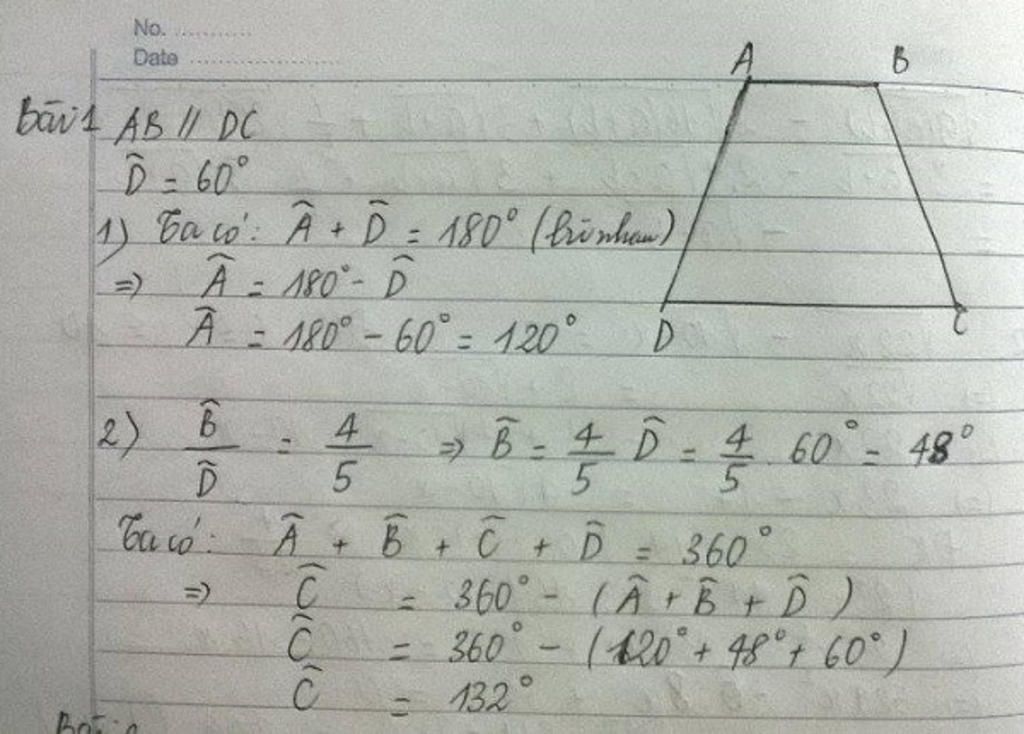 No. ............
Date ........................
A B
Bài 1 AB // DC
D̂ = 60°
1) Ta có: Â + D̂ = 180° (bù nhau)
=> Â = 180° - D̂
Â = 180° - 60° = 120°
D C
2) B̂/D̂ = 4/5 => B̂ = 4/5 D̂ = 4/5 . 60° = 48°
Ta có: Â + B̂ + Ĉ + D̂ = 360°
=> Ĉ = 360° - (Â + B̂ + D̂)
Ĉ = 360° - (120° + 48° + 60°)
Ĉ = 132°